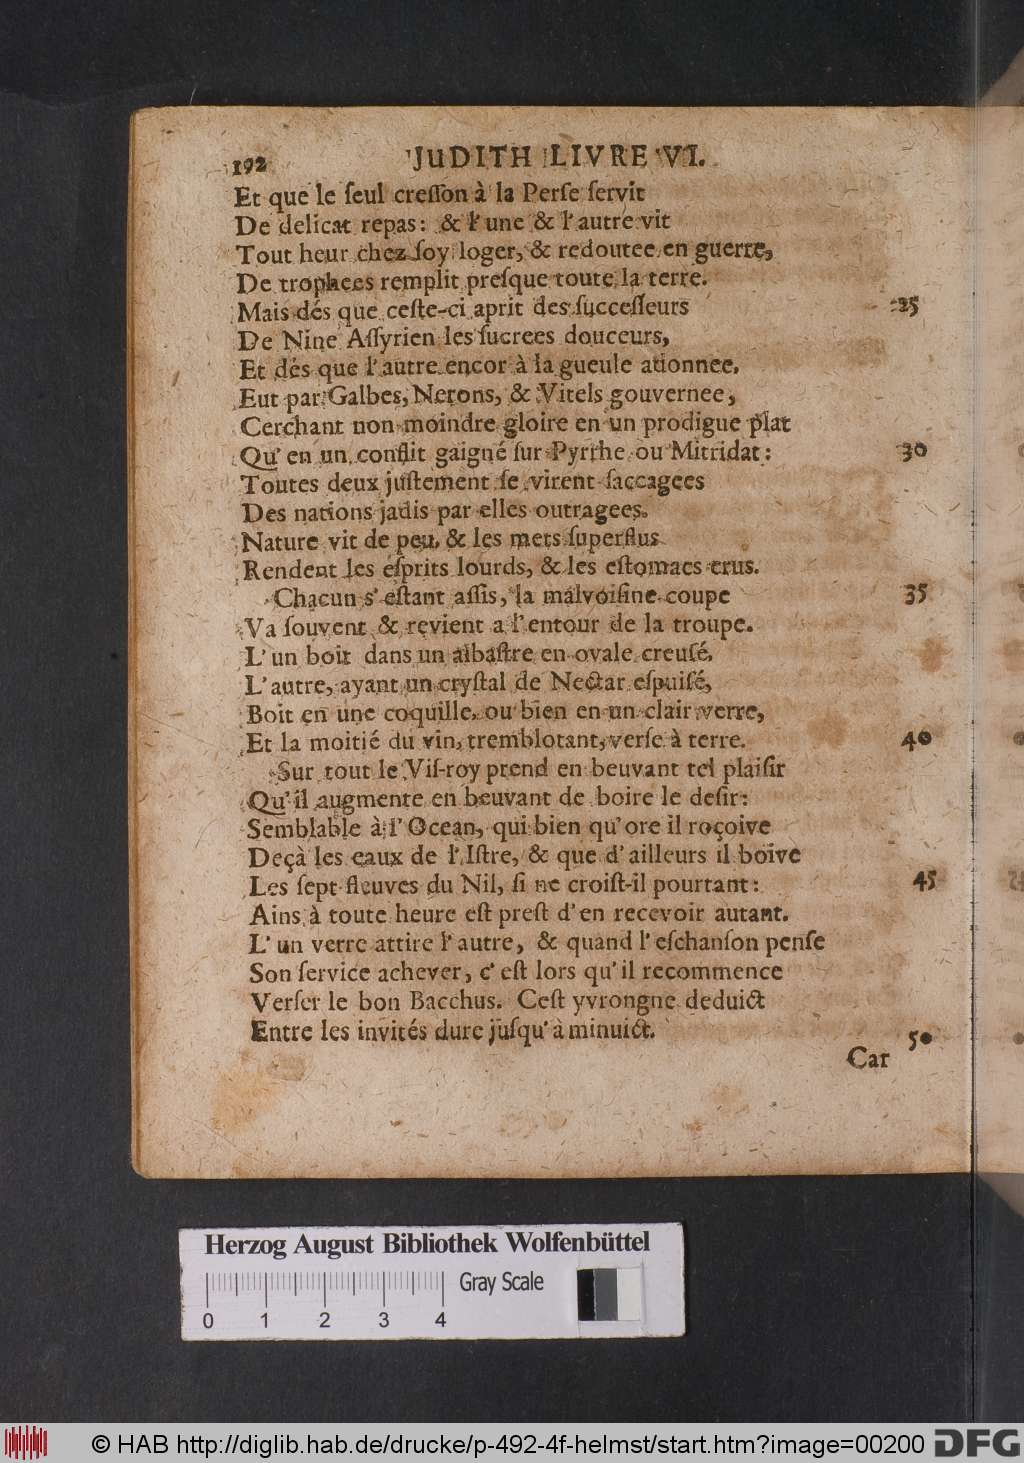 192 JUDITH LIVRE VI.
Et que le ſeul creſſon à la Perſe ſervit
De delicat repas: & l'une & l'autre vit
Tout heur chez ſoy loger, & redoutee en guerre,
De trophees remplit preſque toute la terre.
Mais dés que ceſte-ci aprit des ſucceſſeurs 25
De Nine Aſſyrien les ſucrees douceurs,
Et dés que l'autre encor à la gueule adonnee,
Eut par Galbes, Nerons, & Vitels gouvernee,
Cerchant non moindre gloire en un prodigue plat
Qu'en un conflit gaigné ſur Pyrrhe ou Mitridat: 30
Toutes deux juſtement ſe virent ſaccagees
Des nations jadis par elles outragees.
Nature vit de peu, & les mets ſuperflus
Rendent les eſprits lourds, & les eſtomacs crus.
Chacun s'eſtant aſſis, la malvoiſine coupe 35
Va ſouvent & revient a l'entour de la troupe.
L'un boit dans un albaſtre en ovale creuſé,
L'autre, ayant un cryſtal de Nectar eſpuiſé,
Boit en une coquille, ou bien en un clair verre,
Et la moitié du vin, tremblotant, verſe à terre. 40
Sur tout le Viſ-roy prend en beuvant tel plaiſir
Qu'il augmente en beuvant de boire le deſir:
Semblable à l'Ocean, qui bien qu'ore il roçoive
Deçà les eaux de l'Iſtre, & que d'ailleurs il boive
Les ſept fleuves du Nil, ſi ne croiſt-il pourtant: 45
Ains à toute heure eſt preſt d'en recevoir autant.
L'un verre attire l'autre, & quand l'eſchanſon penſe
Son ſervice achever, c'eſt lors qu'il recommence
Verſer le bon Bacchus. Ceſt yvrongne deduict
Entre les invités dure juſqu'à minuict. 50
Car
Herzog August Bibliothek Wolfenbüttel
Gray Scale
0 1 2 3 4
© HAB http://diglib.hab.de/drucke/p-492-4f-helmst/start.htm?image=00200 DFG